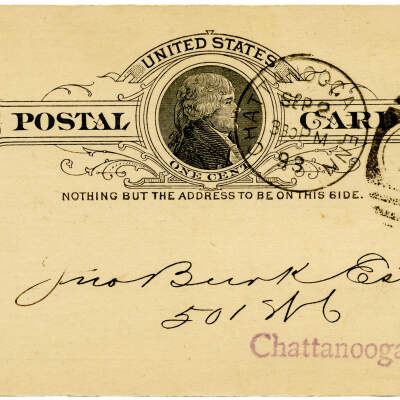 UNITED STATES
POSTAL CARD
ONE CENT
CHATTANOOGA TENN
SEP 2
330PM
93
NOTHING BUT THE ADDRESS TO BE ON THIS SIDE.
Jno Burk Es
501
Chattanooga